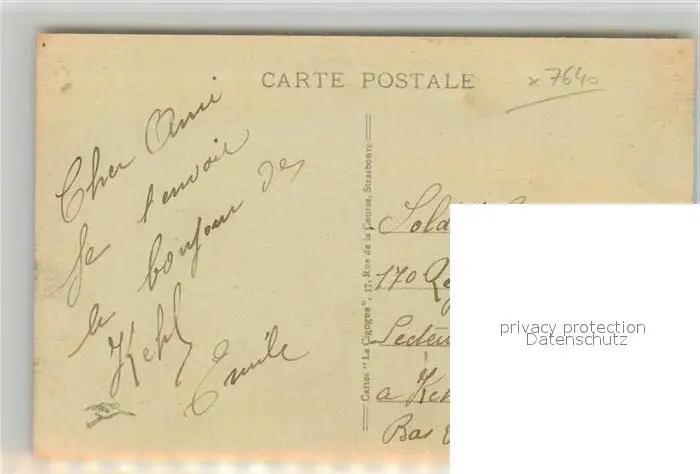 CARTE POSTALE
x 7640
Cher Ami
Je t'envoie
le bonjour de
Kehl
Emile
Cartes "La Cigogne", 37, Rue de la Course, Strasbourg
Sold
170 Reg
Secteu
a Keh
Bas
privacy protection
Datenschutz